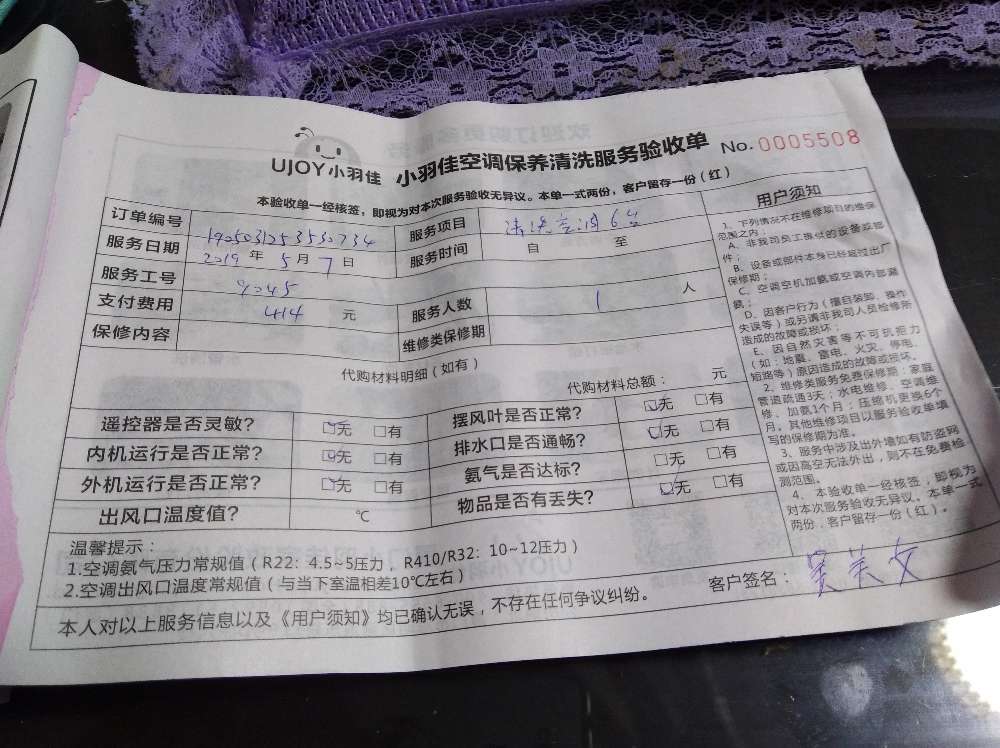 UJOY小羽佳 小羽佳空调保养清洗服务验收单 No.0005508
本验收单一经核签，即视为对本次服务验收无异议。本单一式两份，客户留存一份（红）
订单编号 1905031253530734 服务项目 清洗空调6台
服务日期 2019年5月7日 服务时间 自 至
服务工号 9045
支付费用 414 元 服务人数 1 人
保修内容 维修类保修期
代购材料明细（如有）
代购材料总额： 元
遥控器是否灵敏？ □无 □有 摆风叶是否正常？ □无 □有
内机运行是否正常？ □无 □有 排水口是否通畅？ □无 □有
外机运行是否正常？ □无 □有 氨气是否达标？ □无 □有
出风口温度值？ ℃ 物品是否有丢失？ □无 □有
温馨提示：
1.空调氨气压力常规值（R22：4.5~5压力，R410/R32：10~12压力）
2.空调出风口温度常规值（与当下室温相差10℃左右）
客户签名：
本人对以上服务信息以及《用户须知》均已确认无误，不存在任何争议纠纷。
用户须知
1、下列情况不在维修项目的维保
范围之内：
A、非我司员工操作的设备或部
件；
B、设备或部件本身已经超过出厂
保修期；
C、空调空机加氨或空调内部漏
氨；
D、因客户行为（擅自装卸、操作
失误等）或另请非我司人员检修所
造成的故障或损坏；
E、因自然灾害等不可抗拒力
（如：地震、雷电、火灾、停电、
短路等）原因造成的故障或损坏。
2、维修类服务免费保修期：家庭
管道疏通3天；水电维修、空调维
修、加氨1个月；压缩机更换6个
月。其他维修项目以服务验收单填
写的保修期为准。
3、服务中涉及出外墙如有防盗网
或因高空无法外出，则不在免费检
测范围。
4、本验收单一经核签，即视为
对本次服务验收无异议。本单一式
两份，客户留存一份（红）。